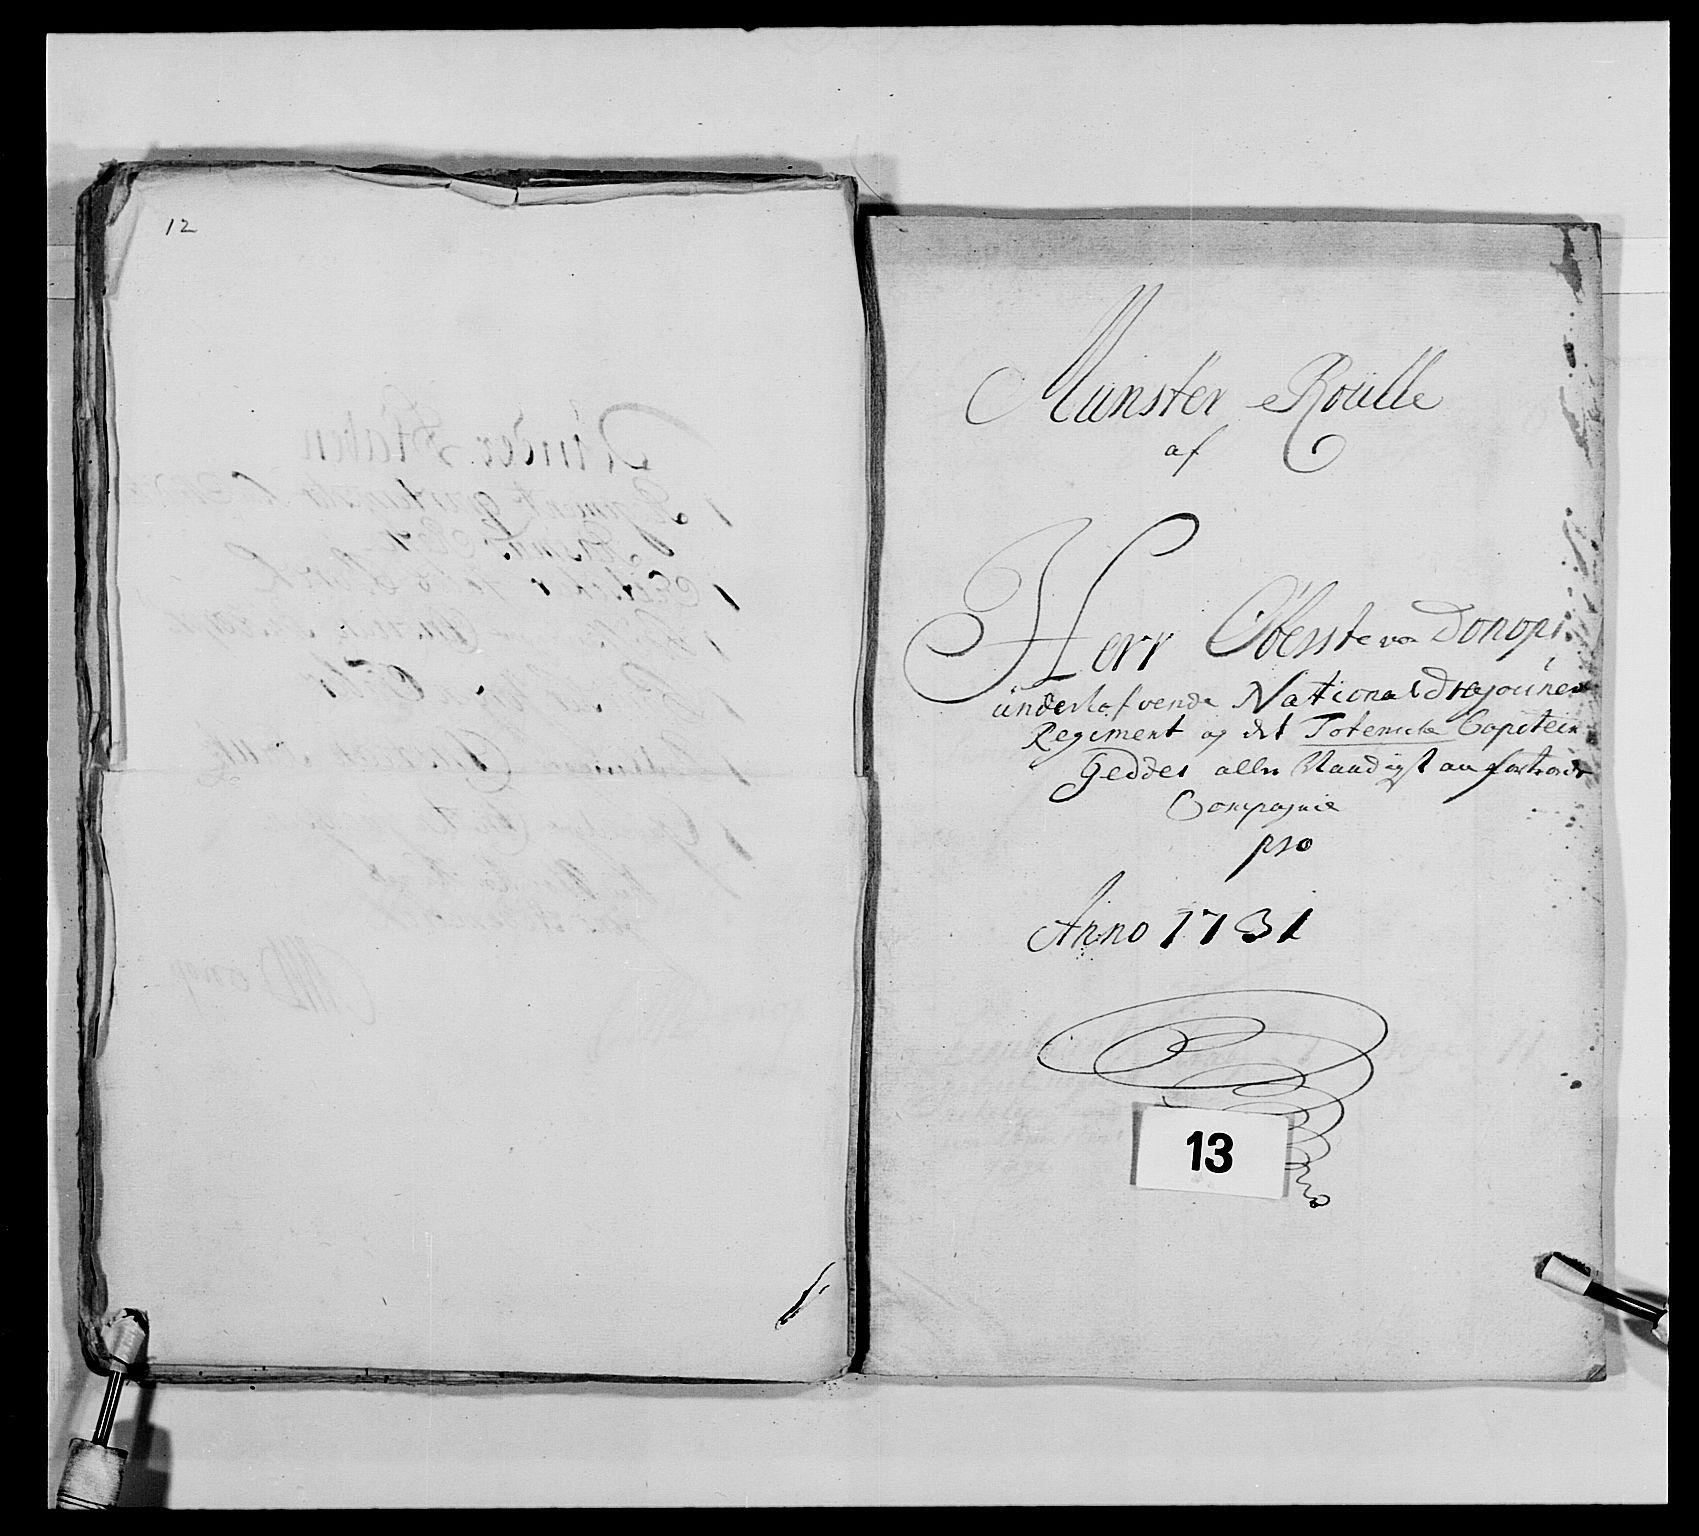 12
Munster Roulle
af
Herr Oberste von Donops
underhafvende National Dragouner
Regiment og det Totenske Capitein
Geddes aller Naadigst anfortroede
Compagnie
pro
Anno 1731
13